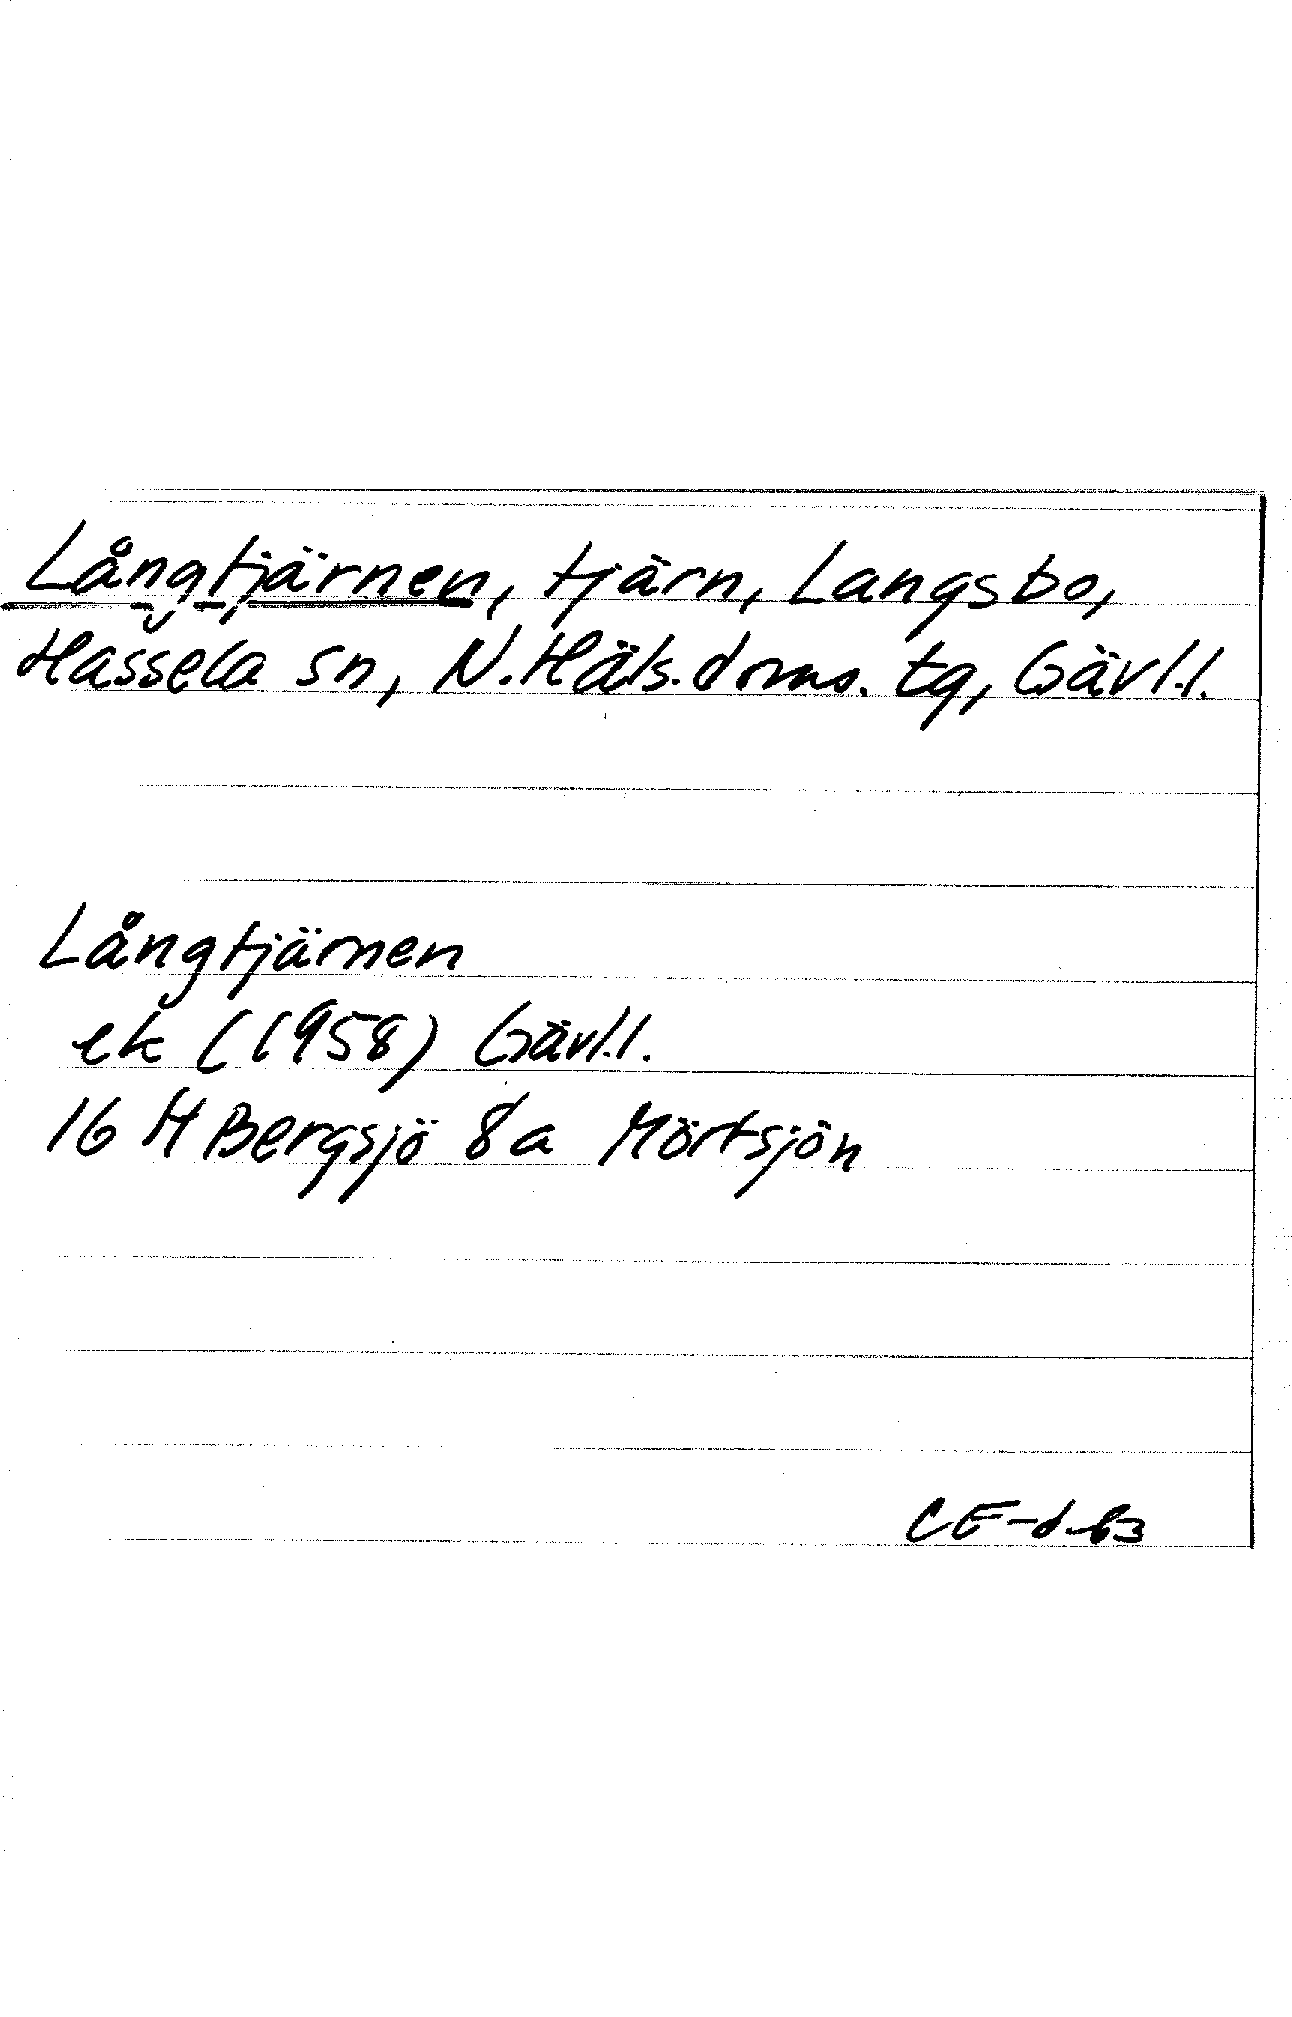 Långtjärnen, tjärn, Langsbo,
Hassela sn, N. Häls. doms. tg, Gävl.l.
Långtjärnen
ek (1958) Gävl.l.
16 H Bergsjö 8a Mörtsjön